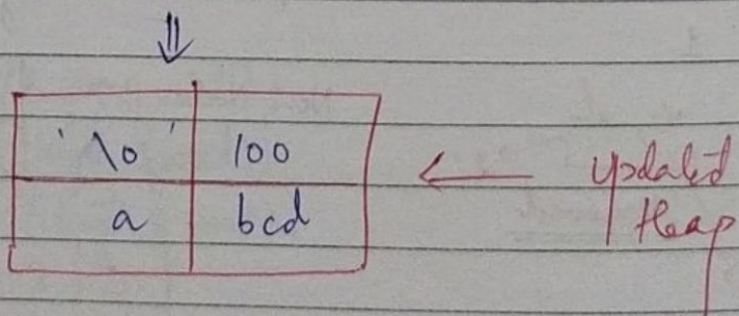 '\0' 100
a bcd
updated
Heap